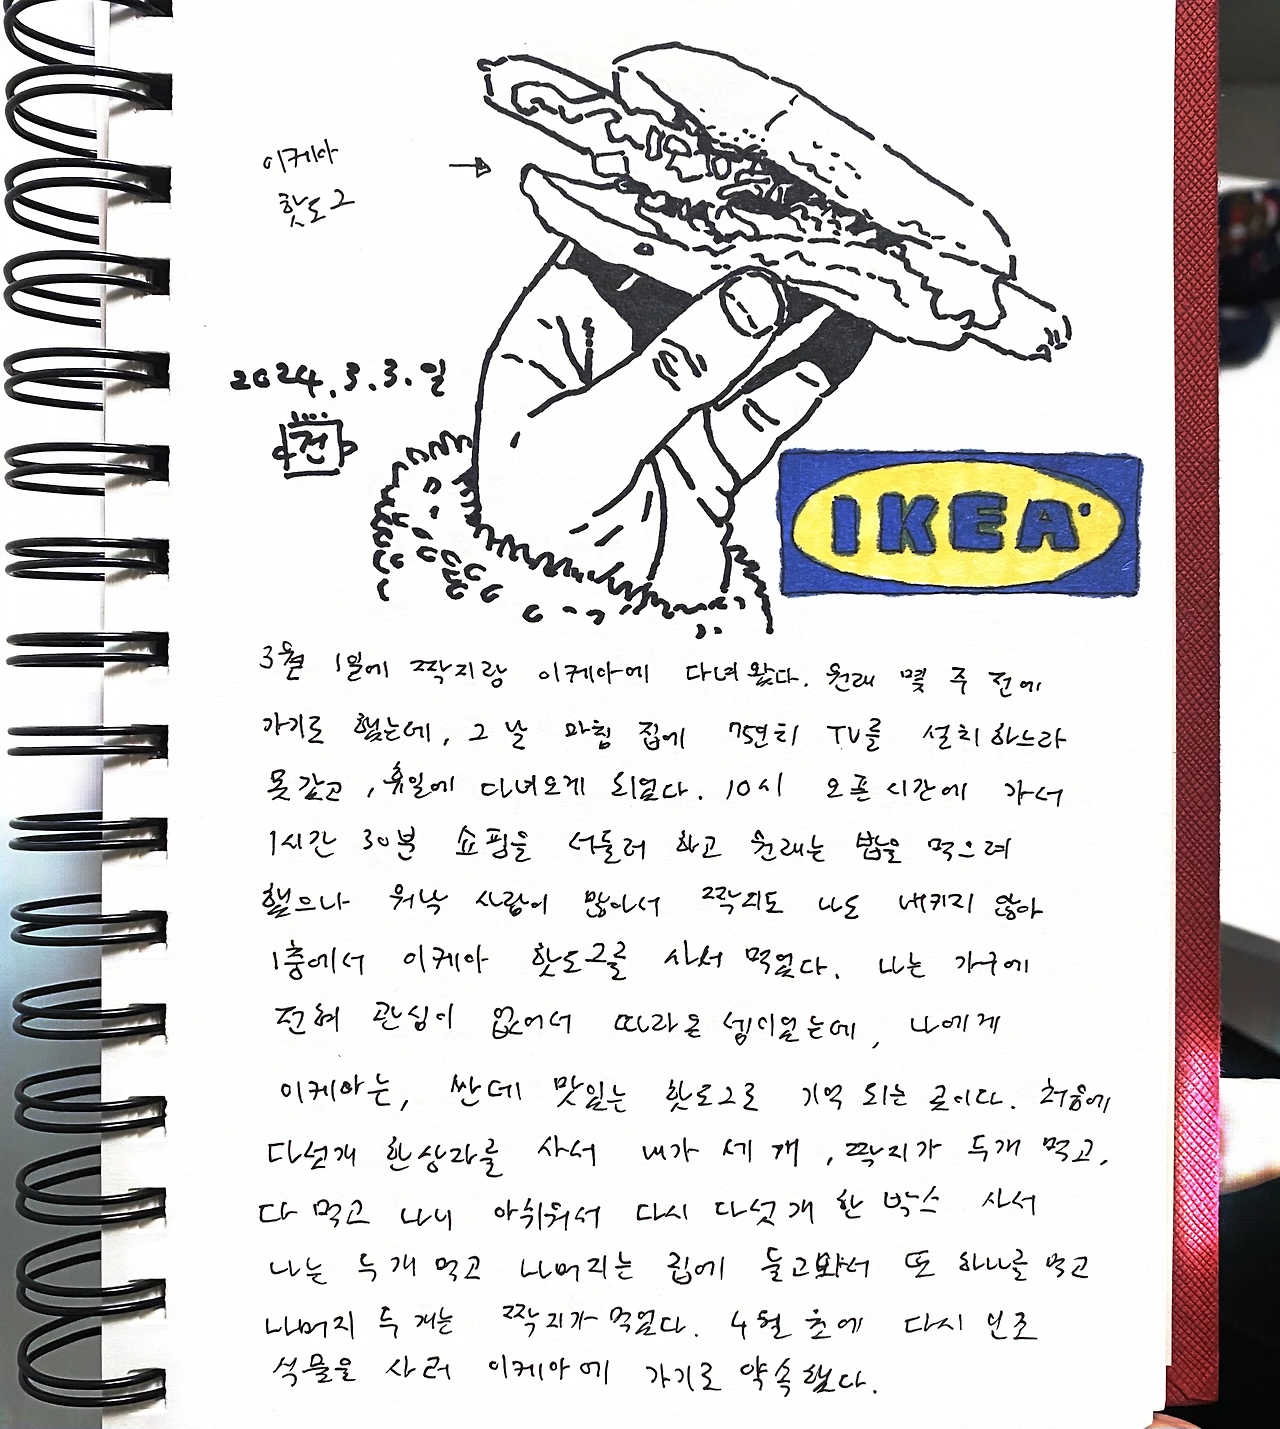 이케아
핫도그
2024.3.3.일
건
IKEA
3월 1일에 짝지랑 이케아에 다녀왔다. 원래 몇 주 전에
가기로 했는데, 그 날 마침 집에 75인치 TV를 설치하느라
못갔고, 휴일에 다녀오게 되었다. 10시 오픈시간에 가서
1시간 30분 쇼핑을 서둘러 하고 원래는 밥을 먹으려
했으나 워낙 사람이 많아서 짝지도 나도 내키지 않아
1층에서 이케아 핫도그를 사서 먹었다. 나는 가구에
전혀 관심이 없어서 따라온 셈이었는데, 나에게
이케아는, 싼데 맛있는 핫도그로 기억 되는 곳이다. 처음에
다섯개 한상자를 사서 내가 세 개, 짝지가 두개 먹고,
다 먹고 나니 아쉬워서 다시 다섯개 한 박스 사서
나는 두개 먹고 나머지는 집에 들고와서 또 하나를 먹고
나머지 두 개는 짝지가 먹었다. 4월 초에 다시 인조
석물을 사러 이케아에 가기로 약속했다.